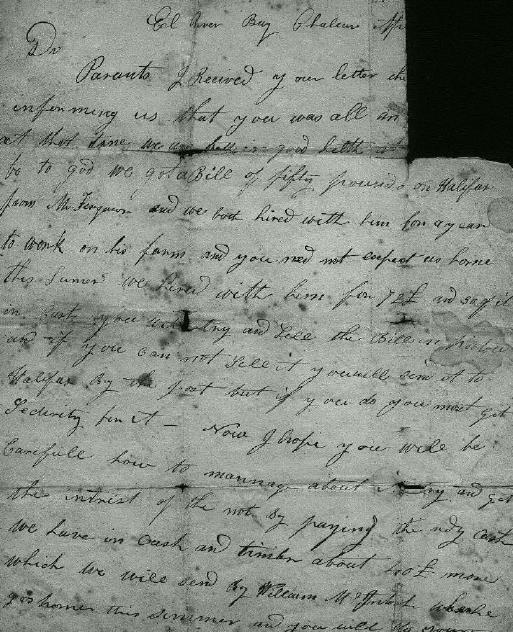 El River Bay Chaleur
Dr
Parants I Received your letter
informing us that you was all
at that time we are both in good helth
be to god we got a Bill of fifty pounds on Halifax
from Mr Ferguson and we both hired with him for a year
to work on his farm and you ned not expect us home
this Sumer we hired with him for 72£ and say it
in you will try and Sell the Bill in
and if you can not Sell it you will send it to
Halifax by the post but if you do you must get
Security for it — Now I hope you will be
Carefull how to mannag about and get
the intrest of the not by paying the redy cash
We have in Cash and timber about £ more
which we will send by William
goo home this summer and you will